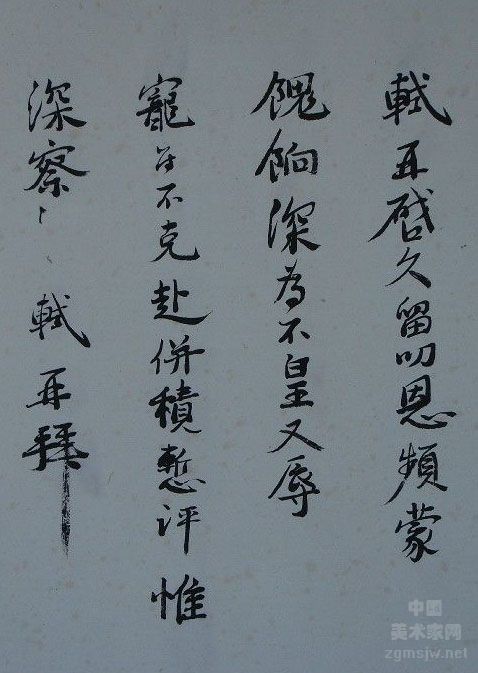 軾再啓久留叨恩頻蒙
餽餉深為不皇又辱
寵召不克赴併積慙評惟
深察〻軾再拜
中国
美术家网
zgmsjw.net